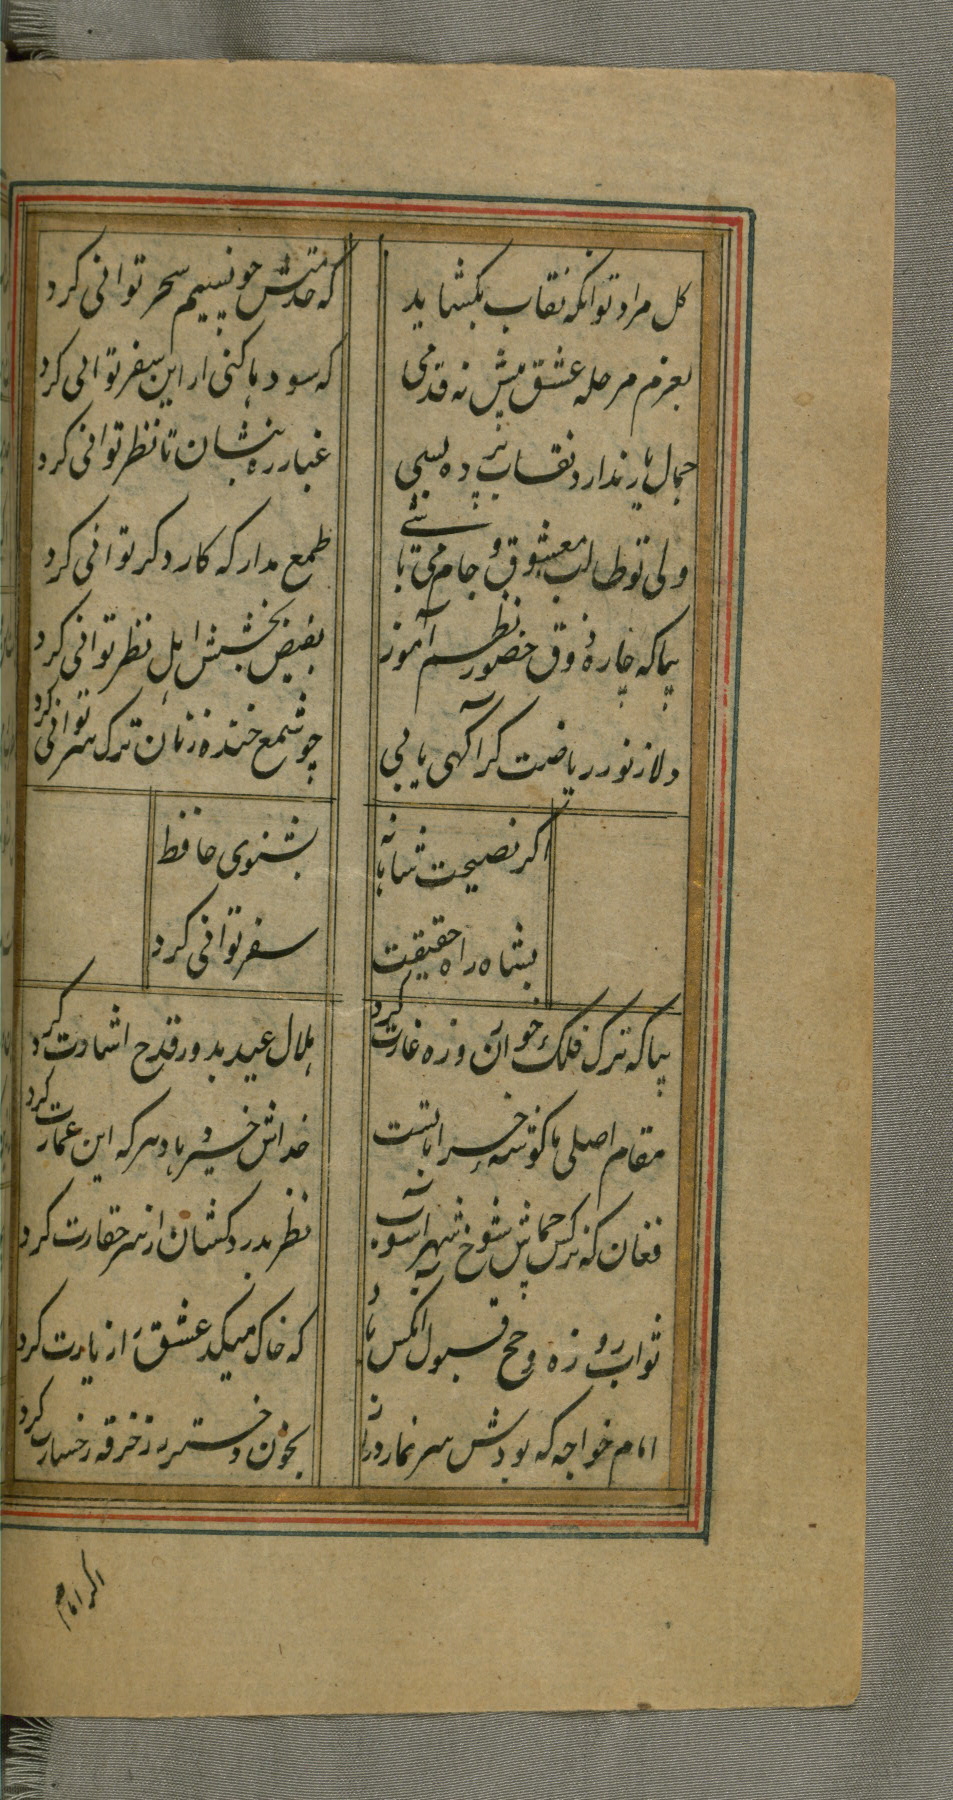 کل مراد تو آنکه نقاب بکشاید
که خدمتش چو نسیم سحر توانی کرد
بعزم مرحله عشق پیش نه قدمی
که سودها کنی ار این سفر توانی کرد
جمال یار ندارد نقاب پرده بسی
غبار ره بنشان تا نظر توانی کرد
ولی تو طالب معشوق و جام می تا
طمع مدار که کار دکر توانی کرد
بیا که چاره ذوق حضور نظم آموز
بفیض بخشش اهل نظر توانی کرد
دلا ز نور ریاضت کر آکهی یابی
چو شمع خنده زنان ترک سر توانی کرد
اکر نصیحت شاهانه
بشنوی حافظ
بشاه راه حقیقت
سفر توانی کرد
بیا که ترک فلک خوان روزه غارت کرد
هلال عید بدور قدح اشارت کرد
مقام اصلی ما کوشه خراباتست
خداش خیر دهاد هر که این عمارت کرد
فغان که نرکس جماش شوخ شهرآشوب
نظر بدردکشان از سر حقارت کرد
ثواب روزه و حج قبول آنکس باد
که خاک میکده عشق را زیارت کرد
امام خواجه که بودش سر نماز دراز
بخون دختر رز خرقه رخسارت کرد
اکر امام